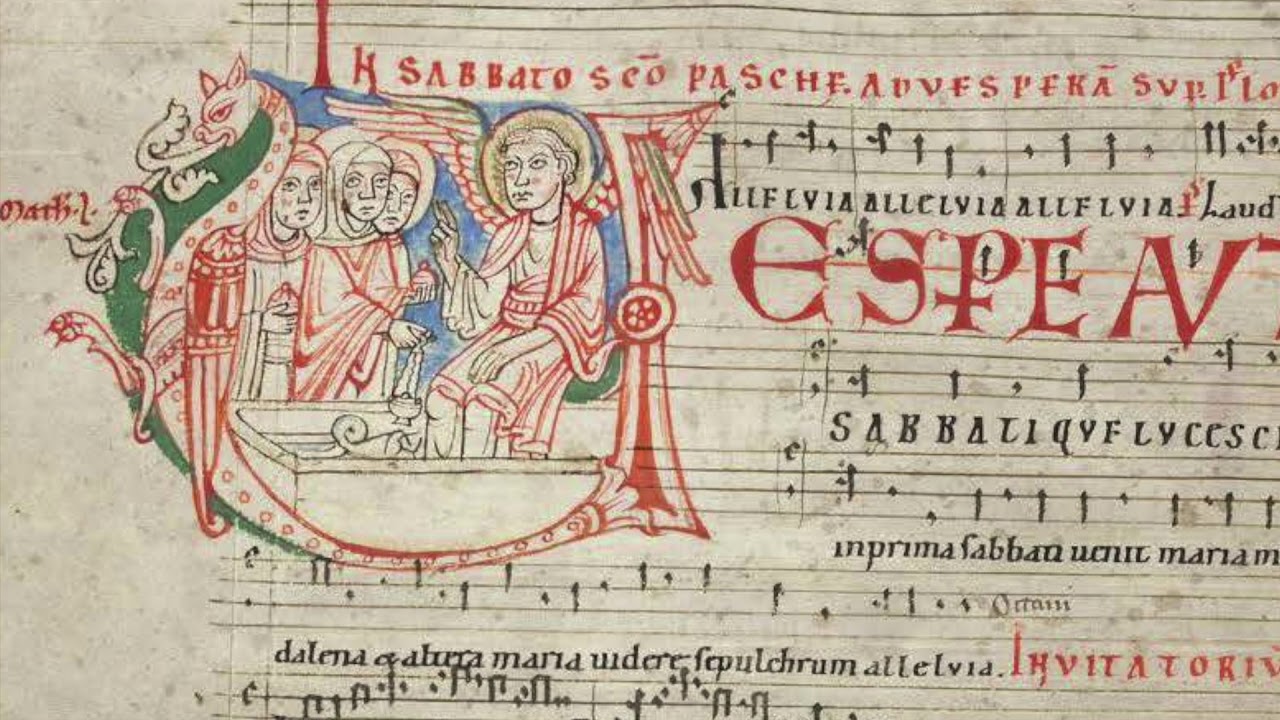 IN SABBATO SCŌ PASCHE. AD VESPERĀ SUP. Ps̄ Lo
Math. l.
ALLELVIA ALLELVIA ALLELVIA. Ps̄ Laud
VESPERE AUT
SABBATI QUE LUCESCI
in prima sabbati uenit maria m
dalena & altera maria uidere sepulchrum allelvia. INVITATORIŪ